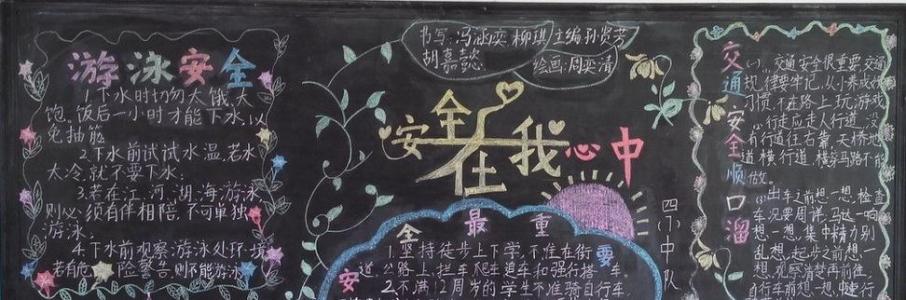 游泳安全
1.下水时切勿太饿、太
饱。饭后一小时才能下水，以
免抽筋
2.下水前试试水温，若水
太冷，就不要下水；
3.若在江、河、湖、海游泳
则必须有伴相陪，不可单独
游泳；
4.下水前观察游泳处环境
若有危险警告，则不能游泳
书写：冯涵奕 柳琪 主编 孙
胡嘉懿 绘画：周奕清
安全在我心中
最重
安全
四小中队
1.坚持徒步上下学，不准在街
道、公路上，拦车、爬车、追车和强行搭车。
2.不满12周岁的学生不准骑自行车，
交通安全顺口溜
(一)、交通安全很重要，交通
规律要牢记，从小养成好
习惯，不在路上玩游戏
行走应走人行道，没
有行道往右靠，天桥地
道横行道，横穿马路不能
做。
出车之前想一想，检查
车况要周详，马达一响
想一想，集中精力别
乱想，起步之前想一
想，观察清楚再前往，
自行车前想一想，中速行